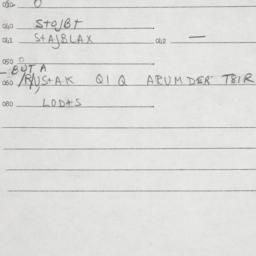 030- O
040 STOJBT
041 STAJBLAX 042 —
050
BUT A
060 /R/USTAK QIQ ARUMDER TBIR
080 LODTS